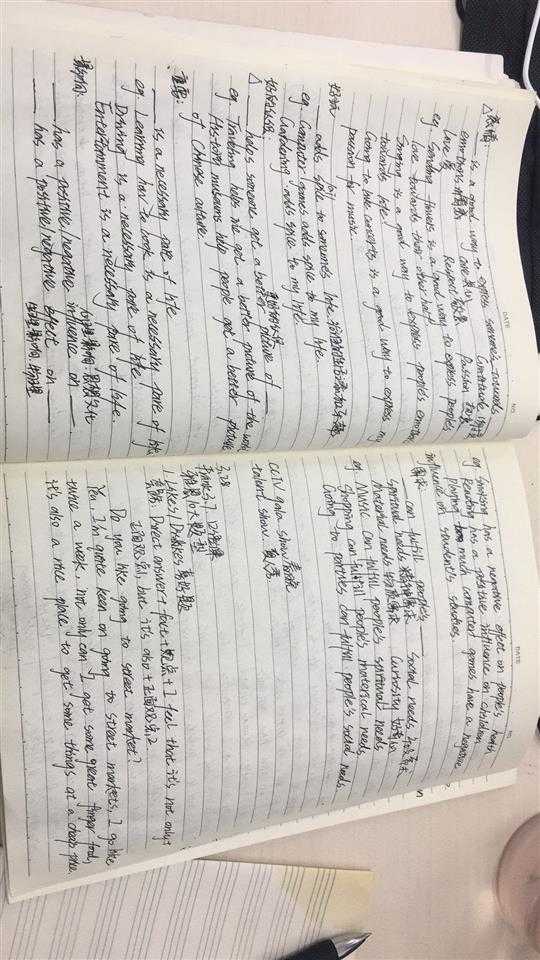 DATE NO.
△表情:
___ is a good way to express someone's towards ___
emotions 情感 Care 关心 Gratitude 感激
love 爱 Respect 尊敬 Passion 热爱
eg. Sending flowers is a good way to express people's
love towards their other half.
Singing is a good way to express people's emotion
towards life.
Going to live concerts is a good way to express my
passion for music.
___ adds spice to someone's life.
eg. Computer games adds spice to my life.
Gardening adds spice to my life.
△ ___ helps someone get a better picture of ___
eg. Traveling helps me get a better picture of the world
History museums help people get a better picture
of Chinese culture.
___ is a necessary part of life
eg Learning how to cook is a necessary part of life
Driving is a necessary part of life.
Entertainment is a necessary part of life.
影响:
___ has a positive/negative influence on ___
___ has a positive/negative effect on ___
DATE NO.
eg Smoking has a negative effect on people's health
Reading has a positive influence on children
Playing too much computer games have a negative
influence on student's studies.
___ can fulfill people's ___
Spiritual needs Social needs
Material needs Curiosity 好奇心
eg Music can fulfill people's spiritual needs
Shopping can fulfill people's material needs
Going to parties can fulfill people's social needs.
CCTV gala show
talent show
1 Likes / Dislikes 喜好题
Direct answer + fact + 观点 + I feel that it's not only +
but it's also +
Do you like going to street market?
Yes, I'm quite keen on going to street markets, I go like
twice a week, not only can I get some great finger food,
it's also a nice place to get some things at a cheap price.